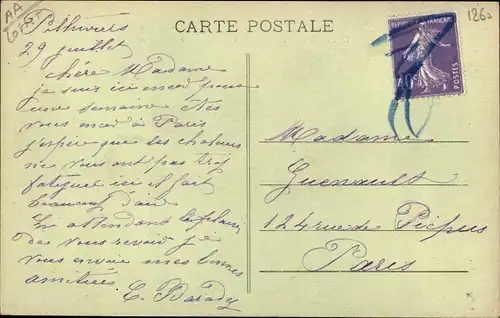 CARTE POSTALE
1860
REPUBLIQUE FRANÇAISE
40c
POSTES
29 juillet
chère Madame
je suis ici encor pour
une semaine êtes
vous encor à Paris
j'espère que les chaleurs
ne vous ont pas trop
fatigué ici il fait
beaucoup d'air
En attendant le plaisir
de vous revoir je
vous envoie mes bonnes
amitiés
Madame
Guenault
124 rue de Picpus
Paris